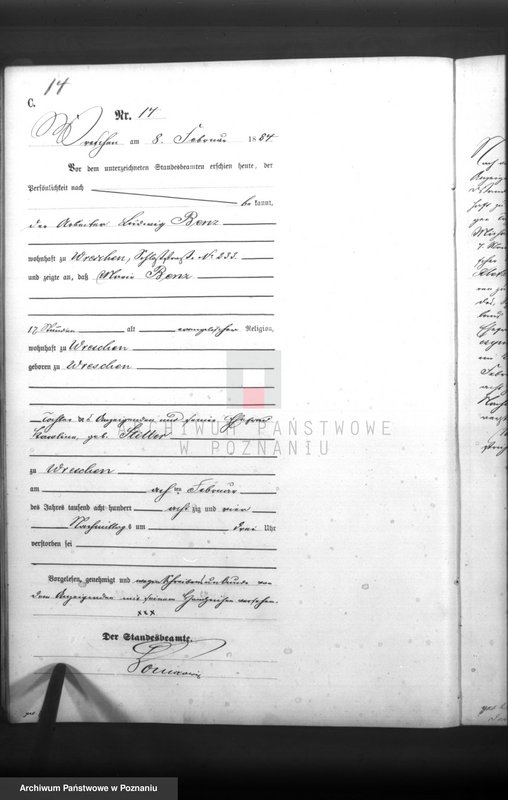 14
C.
Nr. 14
Wreschen am 8. Februar 1884
Vor dem unterzeichneten Standesbeamten erschien heute, der
Persönlichkeit nach
be kannt,
der Arbeiter Ludwig Benz
wohnhaft zu Wreschen, Schloßstraße № 233
und zeigte an, daß Marie Benz
17 Stunden alt evangelischer Religion,
wohnhaft zu Wreschen
geboren zu Wreschen
Tochter des Anzeigenden und seiner Ehefrau
Karoline, geb. Stiller
zu Wreschen
am achten Februar
des Jahres tausend acht hundert achtzig und vier
Nachmittags um drei Uhr
verstorben sei
Vorgelesen, genehmigt und wegen Schreibensunkunde von
dem Anzeigenden mit seinem Handzeichen versehen.
xxx
Der Standesbeamte.
ARCHIWUM PAŃSTWOWE
W POZNANIU
Archiwum Państwowe w Poznaniu